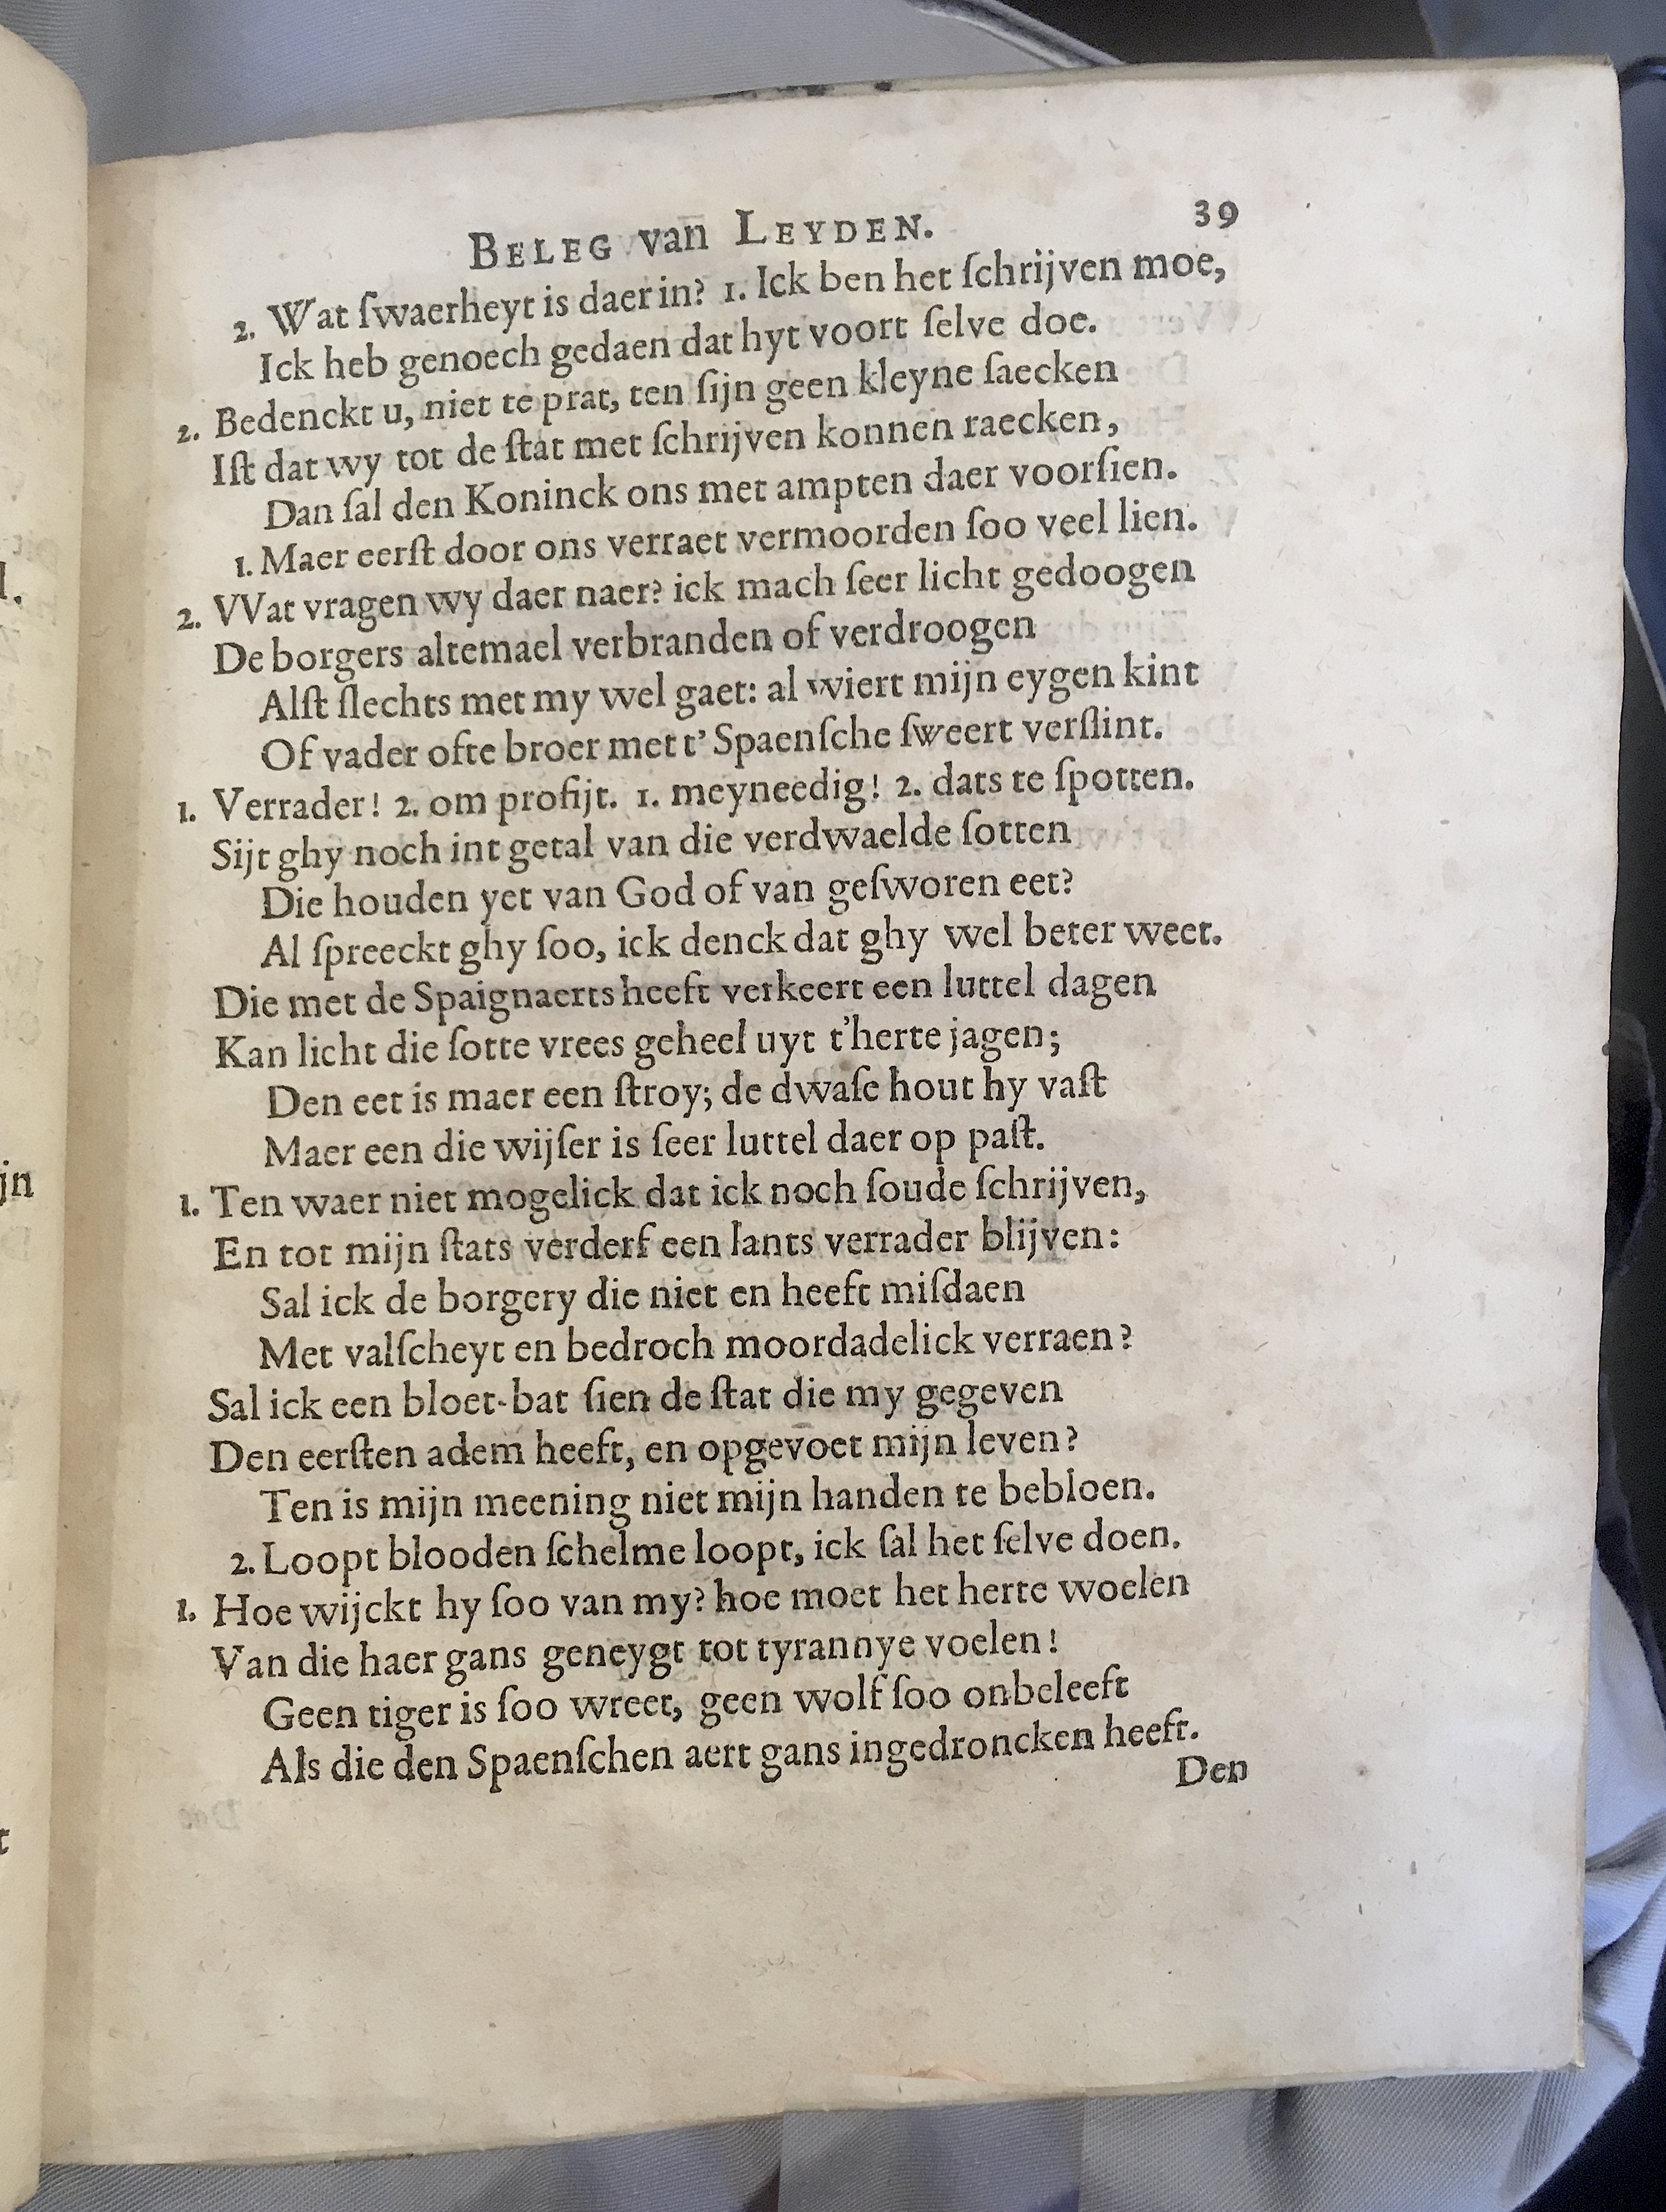 BELEG van LEYDEN. 39
2. Wat ſwaerheyt is daer in? 1. Ick ben het ſchrijven moe,
Ick heb genoech gedaen dat hyt voort ſelve doe.
2. Bedenckt u, niet te prat, ten ſijn geen kleyne ſaecken
Iſt dat wy tot de ſtat met ſchrijven konnen raecken,
Dan ſal den Koninck ons met ampten daer voorſien.
1. Maer eerſt door ons verraet vermoorden ſoo veel lien.
2. VVat vragen wy daer naer? ick mach ſeer licht gedoogen
De borgers altemael verbranden of verdroogen
Alſt ſlechts met my wel gaet: al wiert mijn eygen kint
Of vader ofte broer met t' Spaenſche ſweert verſlint.
1. Verrader! 2. om profijt. 1. meyneedig! 2. dats te ſpotten.
Sijt ghy noch int getal van die verdwaelde ſotten
Die houden yet van God of van geſworen eet?
Al ſpreeckt ghy ſoo, ick denck dat ghy wel beter weet.
Die met de Spaignaerts heeft verkeert een luttel dagen
Kan licht die ſotte vrees geheel uyt t'herte jagen;
Den eet is maer een ſtroy; de dwaſe hout hy vaſt
Maer een die wijſer is ſeer luttel daer op paſt.
1. Ten waer niet mogelick dat ick noch ſoude ſchrijven,
En tot mijn ſtats verderf een lants verrader blijven:
Sal ick de borgery die niet en heeft miſdaen
Met valſcheyt en bedroch moordadelick verraen?
Sal ick een bloet-bat ſien de ſtat die my gegeven
Den eerſten adem heeft, en opgevoet mijn leven?
Ten is mijn meening niet mijn handen te bebloen.
2. Loopt blooden ſchelme loopt, ick ſal het ſelve doen.
1. Hoe wijckt hy ſoo van my? hoe moet het herte woelen
Van die haer gans geneygt tot tyrannye voelen!
Geen tiger is ſoo wreet, geen wolf ſoo onbeleeft
Als die den Spaenſchen aert gans ingedroncken heeft.
Den
l.
jn
t